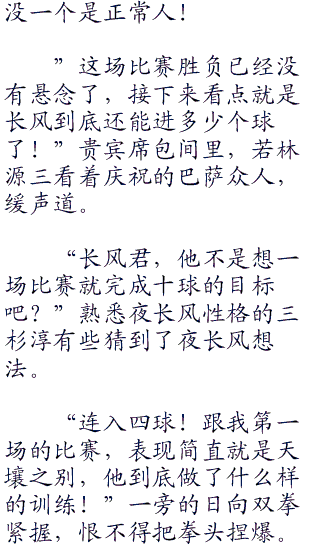 没一个是正常人！
”这场比赛胜负已经没
有悬念了，接下来看点就是
长风到底还能进多少个球
了！”贵宾席包间里，若林
源三看着庆祝的巴萨众人，
缓声道。
“长风君，他不是想一
场比赛就完成十球的目标
吧？”熟悉夜长风性格的三
杉淳有些猜到了夜长风想
法。
“连入四球！跟我第一
场的比赛，表现简直就是天
壤之别，他到底做了什么样
的训练！”一旁的日向双拳
紧握，恨不得把拳头捏爆。